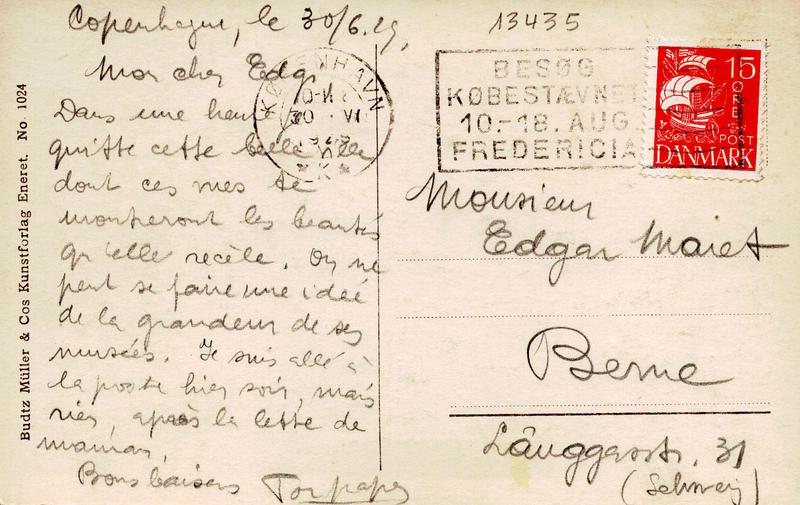 Copenhague, le 30/6.29,
Mon cher Edgar
Dans une heure
quitte cette belle ville
dont ces vues te
montreront les beautés
qu'elle recèle. On ne
peut se faire une idée
de la grandeur de ses
musées. Je suis allé à
la poste hier soir, mais
rien, après la lettre de
maman,
Bons baisers Ton papa
13435
KØBENHAVN
BESØG
KØBESTÆVNET
10.-18. AUG.
FREDERICIA
15
POST
DANMARK
Monsieur
Edgar Maret
Berne
Länggasstr. 31
(Schweiz)
Budtz Müller & Cos Kunstforlag Eneret. No. 1024